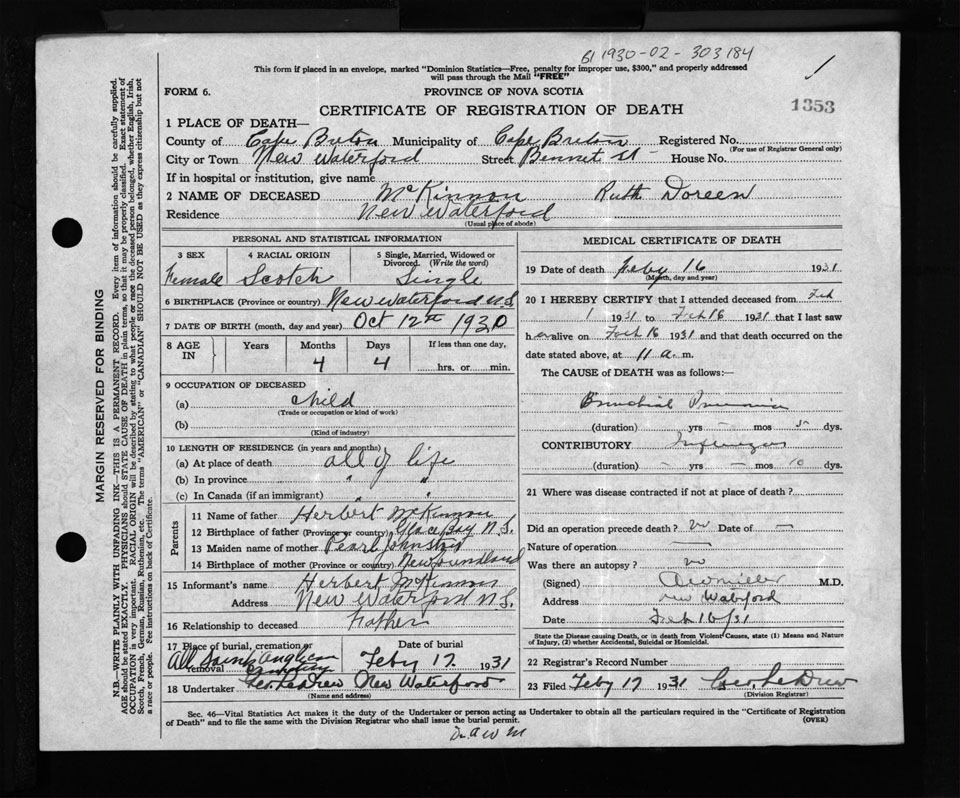 BI 1930-02-303184
This form if placed in an envelope, marked "Dominion Statistics—Free, penalty for improper use, $300," and properly addressed
will pass through the Mail "FREE"
FORM 6. PROVINCE OF NOVA SCOTIA
CERTIFICATE OF REGISTRATION OF DEATH 1353
1 PLACE OF DEATH—
County of Cape Breton Municipality of Cape Breton Registered No.
(For use of Registrar General only)
City or Town New Waterford Street Bennet St House No.
If in hospital or institution, give name
2 NAME OF DECEASED McKinnon Ruth Doreen
Residence New Waterford
(Usual place of abode)
PERSONAL AND STATISTICAL INFORMATION
3 SEX 4 RACIAL ORIGIN 5 Single, Married, Widowed or
Divorced. (Write the word)
Female Scotch Single
6 BIRTHPLACE (Province or country) New Waterford N.S.
7 DATE OF BIRTH (month, day and year) Oct 12th 1930
8 AGE IN Years Months Days If less than one day,
4 4 hrs. or min.
9 OCCUPATION OF DECEASED
(a) child
(Trade or occupation or kind of work)
(b)
(Kind of industry)
10 LENGTH OF RESIDENCE (in years and months)
(a) At place of death all of life
(b) In province " "
(c) In Canada (if an immigrant) " "
Parents
11 Name of father Herbert McKinnon
12 Birthplace of father (Province or country) Glace Bay N.S.
13 Maiden name of mother Pearl Johnston
14 Birthplace of mother (Province or country) Newfoundland
15 Informant's name Herbert McKinnon
Address New Waterford N.S.
16 Relationship to deceased Father
17 Place of burial, cremation or removal Date of burial
All Saints Anglican Cemetery Feby 17. 1931
18 Undertaker Geo LeDrew New Waterford
(Name and address)
MEDICAL CERTIFICATE OF DEATH
19 Date of death Feby 16 1931
(Month, day and year)
20 I HEREBY CERTIFY that I attended deceased from Feb
1 1931 to Feb 16 1931 that I last saw
her alive on Feb 16 1931 and that death occurred on the
date stated above, at 11 a. m.
The CAUSE of DEATH was as follows:—
Bronchial Pneumonia
(duration) yrs — mos dys.
CONTRIBUTORY Influenza
(duration) — yrs — mos 10 dys.
21 Where was disease contracted if not at place of death?
Did an operation precede death? no Date of —
Nature of operation —
Was there an autopsy? no
(Signed) A W Miller M.D.
Address New Waterford
Date Feb 16/31
State the Disease causing Death, or in death from Violent Causes, state (1) Means and Nature
of Injury, (2) whether Accidental, Suicidal or Homicidal.
22 Registrar's Record Number
23 Filed Feby 17 1931 Geo LeDrew
(Division Registrar)
Sec. 46—Vital Statistics Act makes it the duty of the Undertaker or person acting as Undertaker to obtain all the particulars required in the "Certificate of Registration
of Death" and to file the same with the Division Registrar who shall issue the burial permit. (OVER)
Dr A W M
MARGIN RESERVED FOR BINDING
N.B.—WRITE PLAINLY WITH UNFADING INK—THIS IS A PERMANENT RECORD. Every item of information should be carefully supplied.
AGE should be stated EXACTLY. PHYSICIANS should STATE CAUSE OF DEATH in plain terms, so that it may be properly classified. Exact statement of
OCCUPATION is very important. RACIAL ORIGIN will be described by stating to what people or race the deceased person belonged, whether English, Irish,
Scotch, French, German, Russian, Ruthenian, etc. The terms "AMERICAN" or "CANADIAN" SHOULD NOT BE USED as they express citizenship but not
a race or people. See instructions on back of Certificate.